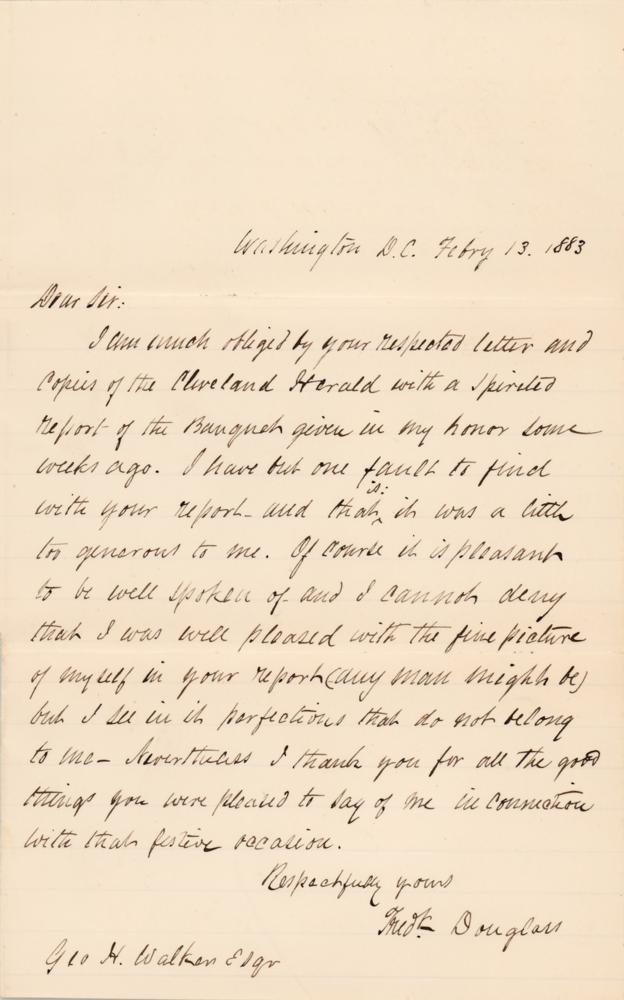 Washington D.C. Febry 13. 1883
Dear Sir:
I am much obliged by your respected letter and
copies of the Cleveland Herald with a spirited
report of the Banquet given in my honor some
weeks ago. I have but one fault to find
with your report - and that is: it was a little
too generous to me. Of course it is pleasant
to be well spoken of - and I cannot deny
that I was well pleased with the fine picture
of myself in your report (any man might be)
but I see in it perfections that do not belong
to me - Nevertheless I thank you for all the good
things you were pleased to say of me in connection
with that festive occasion.
Respectfully yours
Fredk Douglass
Geo H. Walker Esqr